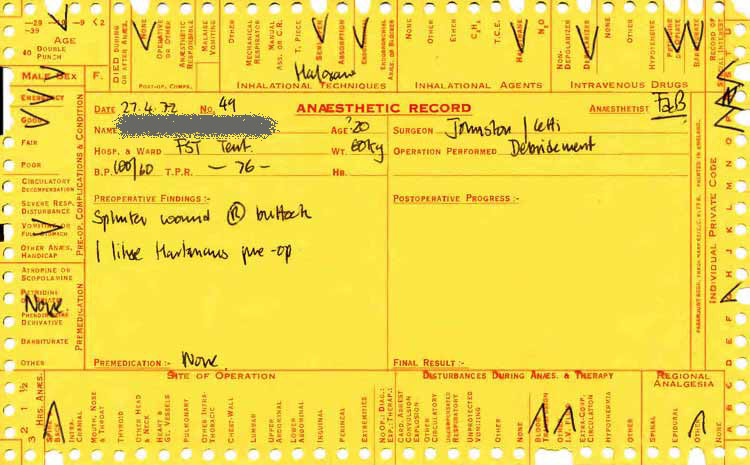 -29 -19 -9 <2
-39
AGE
40 DOUBLE PUNCH
DIED DURING OR AFTER ANÆS.
NONE
OPERATIVE OR OTHER
ANÆSTHETIC RESPONSIBLE
MALAISE VOMITING
OTHER
MECHANICAL RESPIRATOR
MANUAL ASS. OR C.R.
T. PIECE
ABSORPTION
NONE
OTHER
ETHER
C₂H₄
T.C.E.
N₂O
NON-DEPOLARIZER
DEPOLARIZER
OTHER
HYPOTENSIVE
BARBITURATE
RECORD OF SPECIAL INTEREST
MALE SEX F.
POST-OP. COMPS.
INHALATIONAL TECHNIQUES
INHALATIONAL AGENTS
INTRAVENOUS DRUGS
EMERGENCY
GOOD
FAIR
POOR
CIRCULATORY DECOMPENSATION
SEVERE RESP. DISTURBANCE
VOMITING OR FULL STOMACH
OTHER ANÆS. HANDICAP
PRE-OP. COMPLICATIONS & CONDITION
DATE 27.4.72 No. 49
ANÆSTHETIC RECORD
ANÆSTHETIST
NAME
AGE 20
SURGEON Johnston /
HOSP. & WARD FST Tent.
WT. 60kg
OPERATION PERFORMED Debridement
B.P. 100/60 T.P.R. - 76 -
HB.
PREOPERATIVE FINDINGS :-
POSTOPERATIVE PROGRESS :-
Splinter wound Ⓡ buttock
1 litre Hartmans pre-op
ATROPINE OR SCOPOLAMINE
None
DERIVATIVE
BARBITURATE
OTHER
PREMEDICATION
PREMEDICATION :- None.
FINAL RESULT :-
INDIVIDUAL PRIVATE CODE
PRINTED IN ENGLAND.
HRS. ANÆS.
3 2 1 ½
SITE OF OPERATION
INTRA-CRANIAL
MOUTH, NOSE & THROAT
THYROID
OTHER HEAD & NECK
HEART & GT. VESSELS
PULMONARY
OTHER INTRA-THORACIC
CHEST-WALL
LUMBAR
UPPER ABDOMINAL
LOWER ABDOMINAL
INGUINAL
PERINEAL
EXTREMITIES
DISTURBANCES DURING ANÆS. & THERAPY
NO OP.: DIAG.: EXP.: THERAP.:
CARD. ARREST CONVULSION EXPLOSION
OTHER CIRCULATORY
UNEXPECTED RESPIRATORY
UNEXPECTED VOMITING
OTHER
EXTRA-CORP. CIRCULATION
HYPOTHERMIA
OTHER
REGIONAL ANALGESIA
SPINAL
EPIDURAL
OTHER
NONE